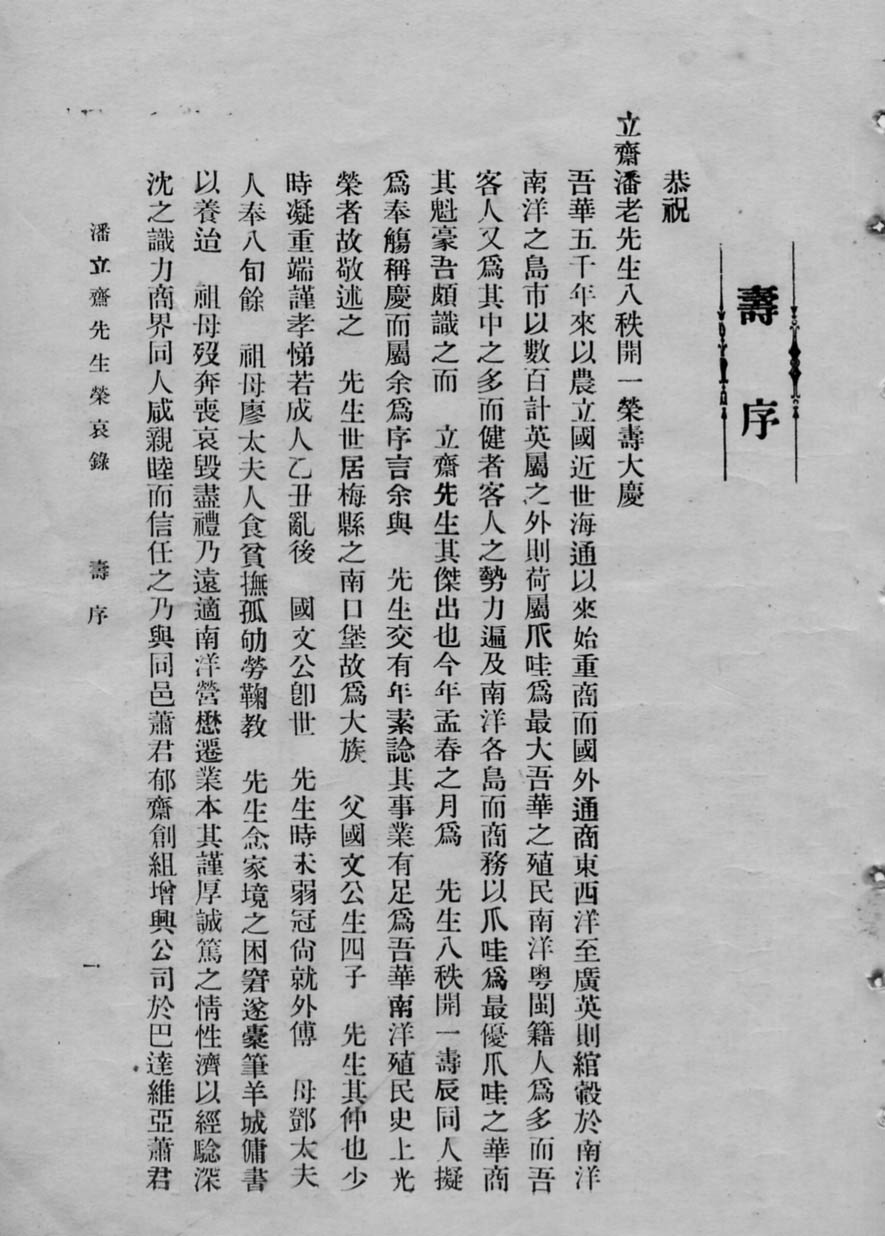 壽序
恭祝
立齋潘老先生八秩開一榮壽大慶
吾華五千年來以農立國近世海通以來始重商而國外通商東西洋至廣英則綰轂於南洋
南洋之島市以數百計英屬之外則荷屬爪哇爲最大吾華之殖民南洋粵閩籍人爲多而吾
客人又爲其中之多而健者客人之勢力遍及南洋各島而商務以爪哇爲最優爪哇之華商
其魁豪吾頗識之而 立齋先生其傑出也今年孟春之月爲 先生八秩開一壽辰同人擬
爲奉觴稱慶而屬余爲序言余與 先生交有年素諗其事業有足爲吾華南洋殖民史上光
榮者故敬述之 先生世居梅縣之南口堡故爲大族 父國文公生四子 先生其仲也少
時凝重端謹孝悌若成人乙丑亂後 國文公卽世 先生時未弱冠尙就外傅 母鄧太夫
人奉八旬餘 祖母廖太夫人食貧撫孤劬勞鞠教 先生念家境之困窘遂橐筆羊城傭書
以養迨 祖母歿奔喪哀毀盡禮乃遠適南洋營懋遷業本其謹厚誠篤之情性濟以經驗深
沈之識力商界同人咸親睦而信任之乃與同邑蕭君郁齋創組增興公司於巴達維亞蕭君
潘立齋先生榮哀錄 壽序 一